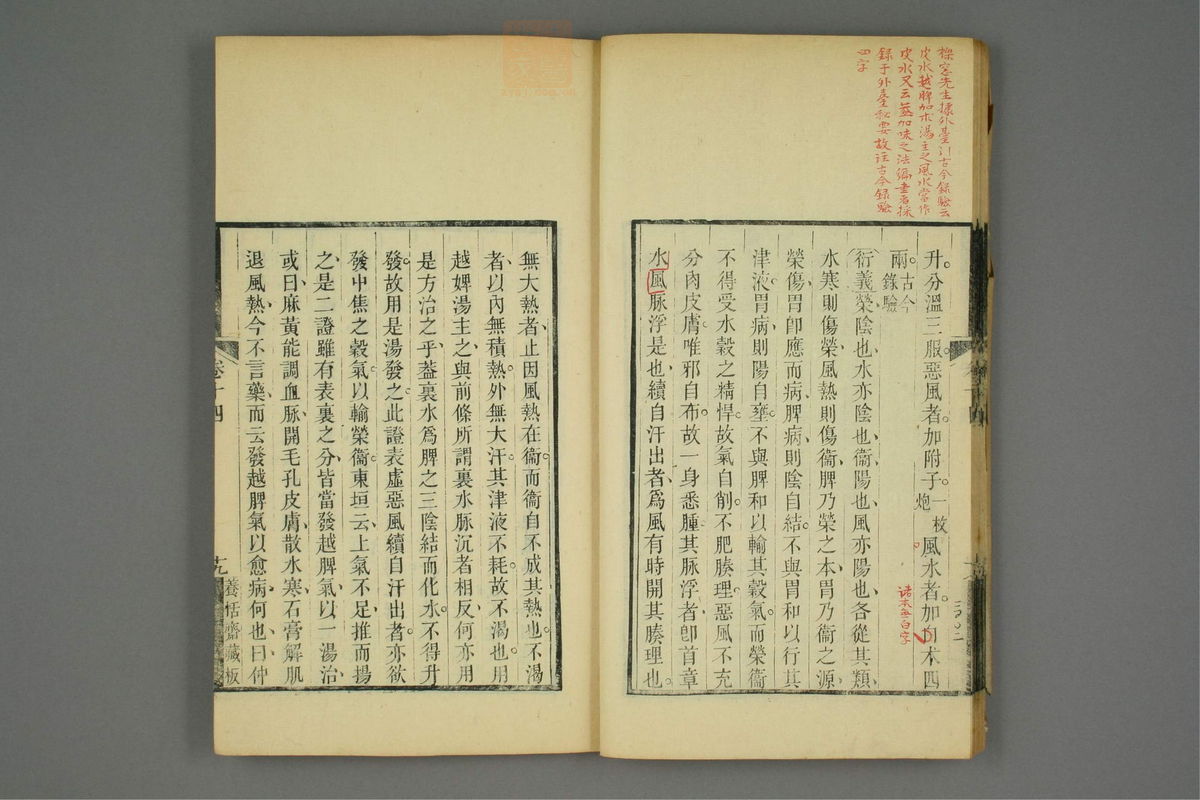 櫟窓先生據外臺引古今錄驗云
皮水越脾加朮湯主之風水當作
皮水又云蓋加味之法編書者採
錄于外臺秘要故註古今錄驗
四字
升分溫三服惡風者加附子一枚炮風水者加白朮四
諸本無白字
兩古今錄驗
衍義榮陰也水亦陰也衞陽也風亦陽也各從其類
水寒則傷榮風熱則傷衞脾乃榮之本胃乃衞之源
榮傷胃卽應而病脾病則陰自結不與胃和以行其
津液胃病則陽自壅不與脾和以輸其穀氣而榮衞
不得受水穀之精悍故氣自削不肥腠理惡風不充
分肉皮膚唯邪自布故一身悉腫其脉浮者卽首章
水風脉浮是也續自汗出者爲風有時開其腠理也
無大熱者止因風熱在衞而衞自不成其熱也不渴
者以內無積熱外無大汗其津液不耗故不渴也用
越婢湯主之與前條所謂裏水脉沉者相反何亦用
是方治之乎葢裏水爲脾之三陰結而化水不得升
發故用是湯發之此證表虛惡風續自汗出者亦欲
發中焦之穀氣以輸榮衞東垣云上氣不足推而揚
之是二證雖有表裏之分皆當發越脾氣以一湯治
或曰麻黃能調血脉開毛孔皮膚散水寒石膏解肌
退風熱今不言藥而云發越脾氣以愈病何也曰仲
卷十四
養恬齋藏板